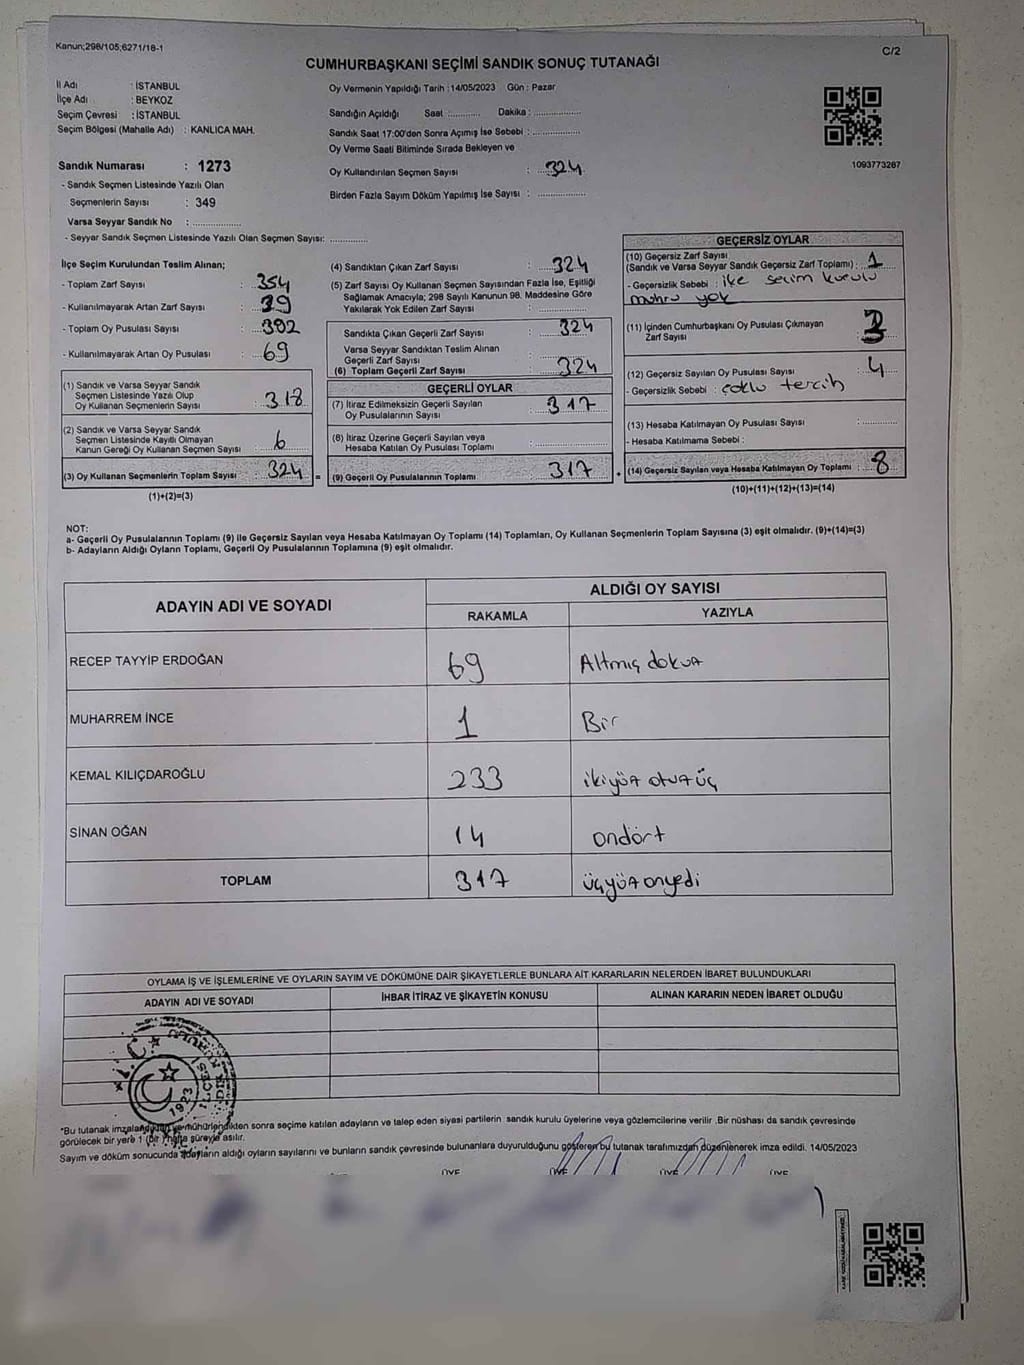 Kanun;298/105;6271/18-1
C/2
CUMHURBAŞKANI SEÇİMİ SANDIK SONUÇ TUTANAĞI
İl Adı : İSTANBUL
İlçe Adı : BEYKOZ
Seçim Çevresi : İSTANBUL
Seçim Bölgesi (Mahalle Adı) : KANLICA MAH.
Oy Vermenin Yapıldığı Tarih :14/05/2023 Gün : Pazar
Sandığın Açıldığı Saat :........... Dakika :................
Sandık Saat 17:00'den Sonra Açımış İse Sebebi :................
Oy Verme Saati Bitiminde Sırada Bekleyen ve
Oy Kullandırılan Seçmen Sayısı : 324
Birden Fazla Sayım Döküm Yapılmış İse Sayısı :................
1093773267
Sandık Numarası : 1273
- Sandık Seçmen Listesinde Yazılı Olan
Seçmenlerin Sayısı : 349
Varsa Seyyar Sandık No :................
- Seyyar Sandık Seçmen Listesinde Yazılı Olan Seçmen Sayısı: .............
İlçe Seçim Kurulundan Teslim Alınan;
- Toplam Zarf Sayısı : 354
- Kullanılmayarak Artan Zarf Sayısı :
- Toplam Oy Pusulası Sayısı :
- Kullanılmayarak Artan Oy Pusulası : 69
(1) Sandık ve Varsa Seyyar Sandık
Seçmen Listesinde Yazılı Olup
Oy Kullanan Seçmenlerin Sayısı : 318
(2) Sandık ve Varsa Seyyar Sandık
Seçmen Listesinde Kayıtlı Olmayan
Kanun Gereği Oy Kullanan Seçmen Sayısı : 6
(3) Oy Kullanan Seçmenlerin Toplam Sayısı : 324 =
(1)+(2)=(3)
(4) Sandıktan Çıkan Zarf Sayısı : 324
(5) Zarf Sayısı Oy Kullanan Seçmen Sayısından Fazla İse, Eşitliği
Sağlamak Amacıyla; 298 Sayılı Kanunun 98. Maddesine Göre
Yakılarak Yok Edilen Zarf Sayısı :................
Sandıkta Çıkan Geçerli Zarf Sayısı : 324
Varsa Seyyar Sandıktan Teslim Alınan
Geçerli Zarf Sayısı
(6) Toplam Geçerli Zarf Sayısı : 324
GEÇERLİ OYLAR
(7) İtiraz Edilmeksizin Geçerli Sayılan
Oy Pusulalarının Sayısı : 317
(8) İtiraz Üzerine Geçerli Sayılan veya
Hesaba Katılan Oy Pusulası Toplamı :................
(9) Geçerli Oy Pusulalarının Toplamı : 317 +
GEÇERSİZ OYLAR
(10) Geçersiz Zarf Sayısı
(Sandık ve Varsa Seyyar Sandık Geçersiz Zarf Toplamı) : 1
- Geçersizlik Sebebi : ilçe seçim kurulu
mührü yok
(11) İçinden Cumhurbaşkanı Oy Pusulası Çıkmayan
Zarf Sayısı : 3
(12) Geçersiz Sayılan Oy Pusulası Sayısı : 4
- Geçersizlik Sebebi : çoklu tercih
(13) Hesaba Katılmayan Oy Pusulası Sayısı :.............
- Hesaba Katılmama Sebebi :
(14) Geçersiz Sayılan veya Hesaba Katılmayan Oy Toplamı : 8
(10)+(11)+(12)+(13)=(14)
NOT:
a- Geçerli Oy Pusulalarının Toplamı (9) ile Geçersiz Sayılan veya Hesaba Katılmayan Oy Toplamı (14) Toplamları, Oy Kullanan Seçmenlerin Toplam Sayısına (3) eşit olmalıdır. (9)+(14)=(3)
b- Adayların Aldığı Oyların Toplamı, Geçerli Oy Pusulalarının Toplamına (9) eşit olmalıdır.
ADAYIN ADI VE SOYADI
ALDIĞI OY SAYISI
RAKAMLA YAZIYLA
RECEP TAYYİP ERDOĞAN 69 Altmış dokuz
MUHARREM İNCE 1 Bir
KEMAL KILIÇDAROĞLU 233 ikiyüz otuz üç
SİNAN OĞAN 14 ondört
TOPLAM 317 üçyüz onyedi
OYLAMA İŞ VE İŞLEMLERİNE VE OYLARIN SAYIM VE DÖKÜMÜNE DAİR ŞİKAYETLERLE BUNLARA AİT KARARLARIN NELERDEN İBARET BULUNDUKLARI
ADAYIN ADI VE SOYADI İHBAR İTİRAZ VE ŞİKAYETİN KONUSU ALINAN KARARIN NEDEN İBARET OLDUĞU
T.C.
1923
*Bu tutanak imzalandıktan ve mühürlendikten sonra seçime katılan adayların ve talep eden siyasi partilerin sandık kurulu üyelerine veya gözlemcilerine verilir .Bir nüshası da sandık çevresinde
görülecek bir yere 1 (bir ) hafta süreyle asılır.
Sayım ve döküm sonucunda adayların aldığı oyların sayılarını ve bunların sandık çevresinde bulunanlara duyurulduğunu gösteren bu tutanak tarafımızdan düzenlenerek imza edildi. 14/05/2023
ÜYE ÜYE ÜYE ÜYE